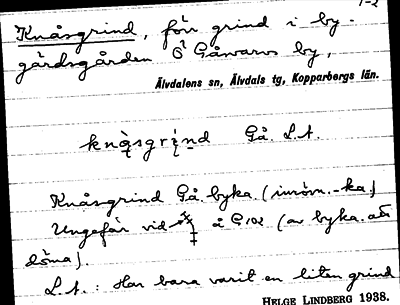 1-2
Knåsgrind, förr grind i by-
gärdsgården Ö Gåsvarvs by,
Älvdalens sn, Älvdals tg, Kopparbergs län.
knå̀sgrí̀nd Gå. L.A.
Knåsgrind Gå. byka. (inröm. -ka)
Ungefär vid å C102 (av byka.
döma).
L.A.: Har bara varit en liten grind
HELGE LINDBERG 1938.